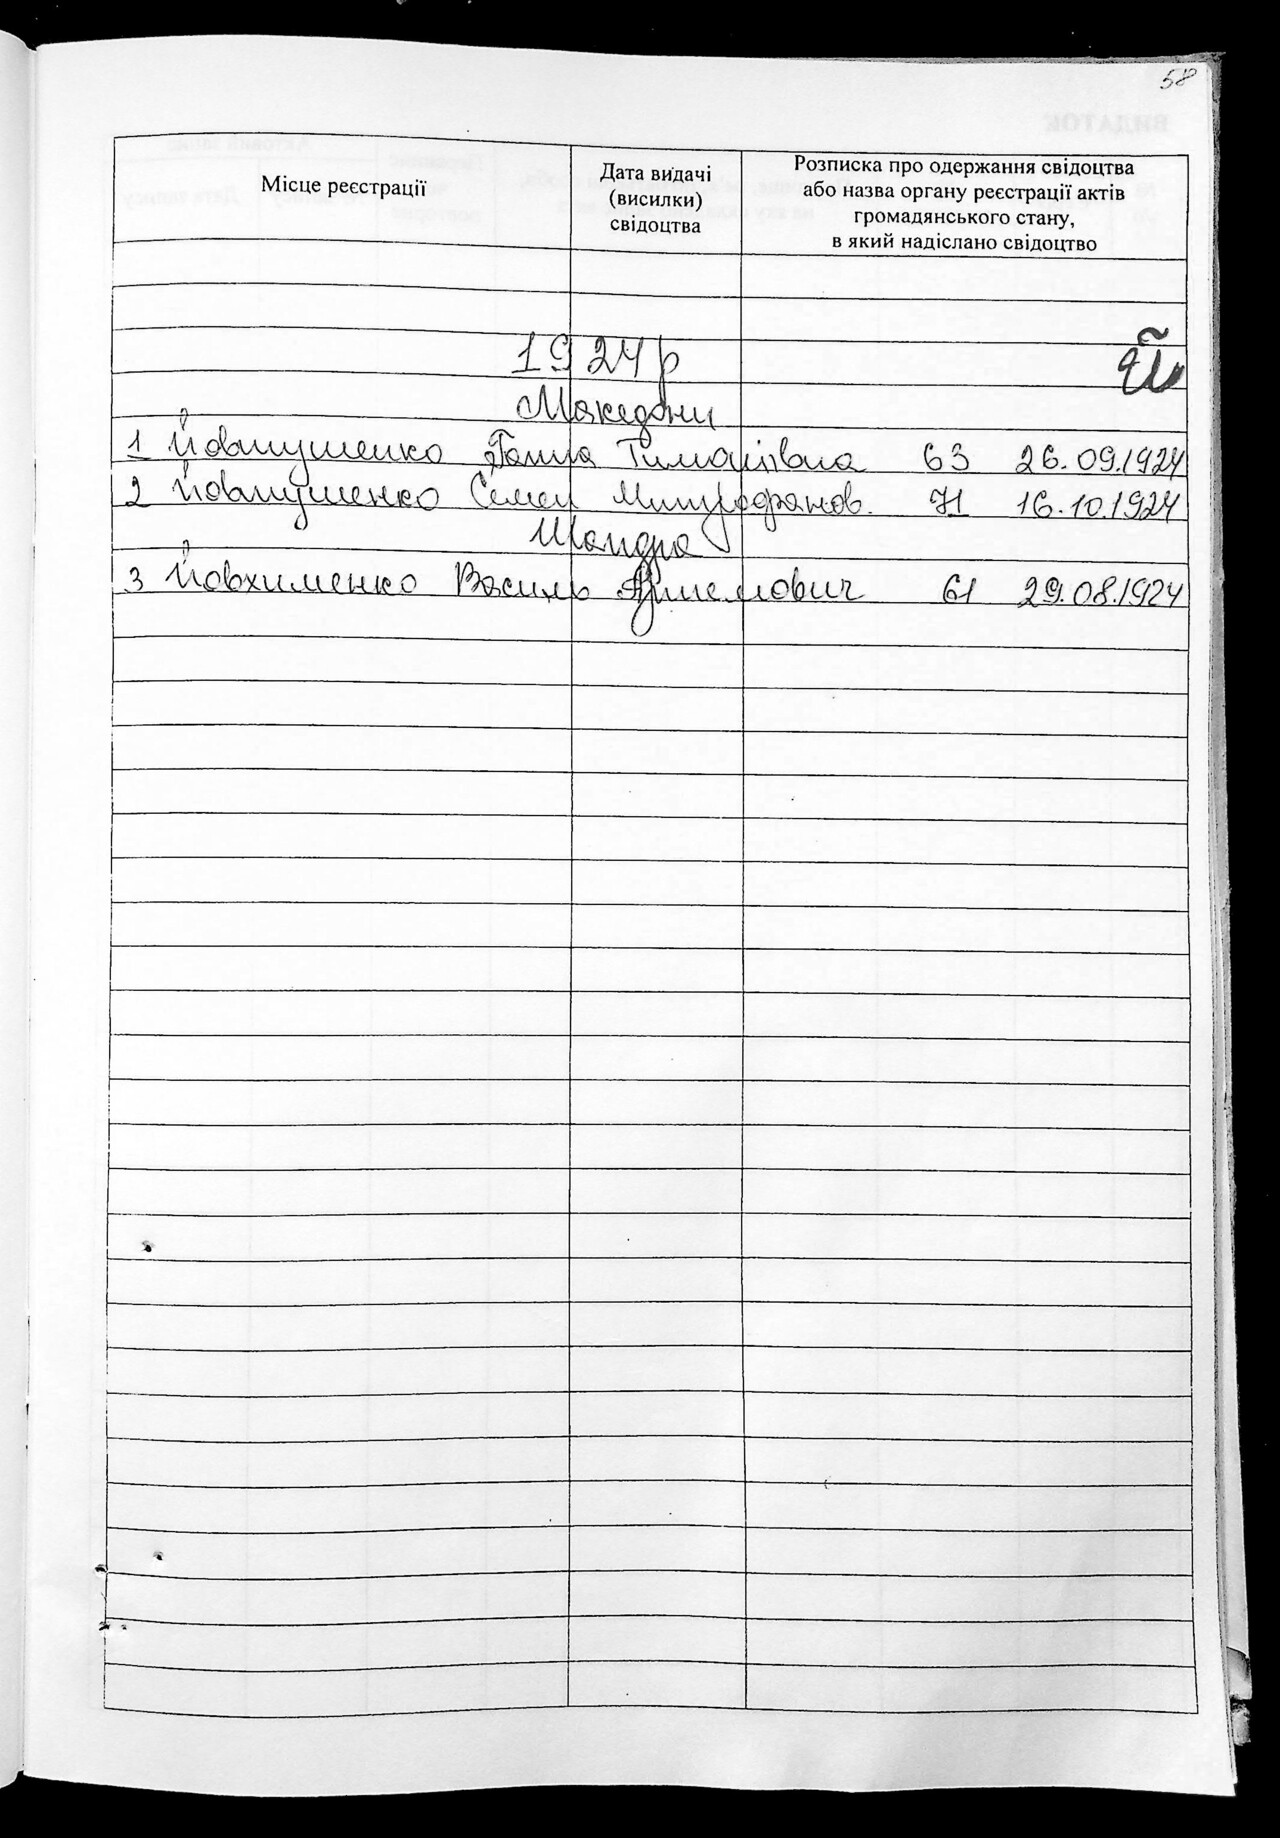 58
Місце реєстрації
Дата видачі
(висилки)
свідоцтва
Розписка про одержання свідоцтва
або назва органу реєстрації актів
громадянського стану,
в який надіслано свідоцтво
1924р
Й
Македони
1 Йовтушенко Ганна Тимофіївна 63 26.09.1924
2 Йовтушенко Семен Митрофанов. 71 16.10.1924
Шандра
3 Йовхименко Василь Артемович 61 29.08.1924